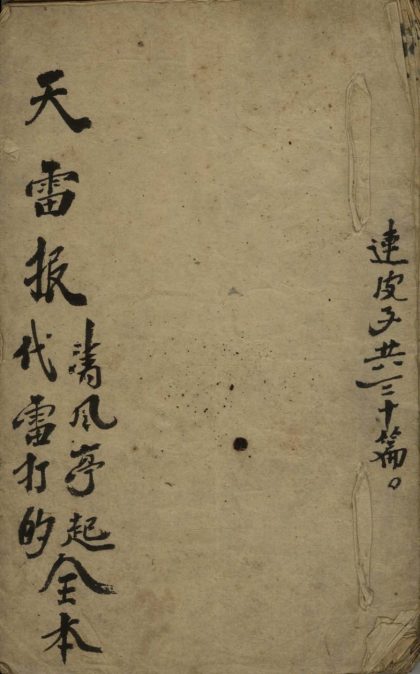 連皮子共三十篇。
天雷报
清风亭起
代雷打的
全本